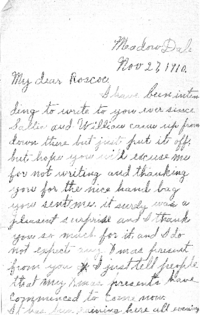 Meadow Dale
Nov 27, 1910.
My dear Roscoe
I have been inten
ding to write to you ever since
Sallie and William came up from
down there but just put it off,
but hope you will excuse me
for not writing and thanking
you for the nice hand bag
you sent me. it surely was a
pleasent surprise and I thank
you so much for it and I do
not expect any Xmas present
from you I just tell people
that my Xmas presents have
commenced to come now.
It has been raining here all evening